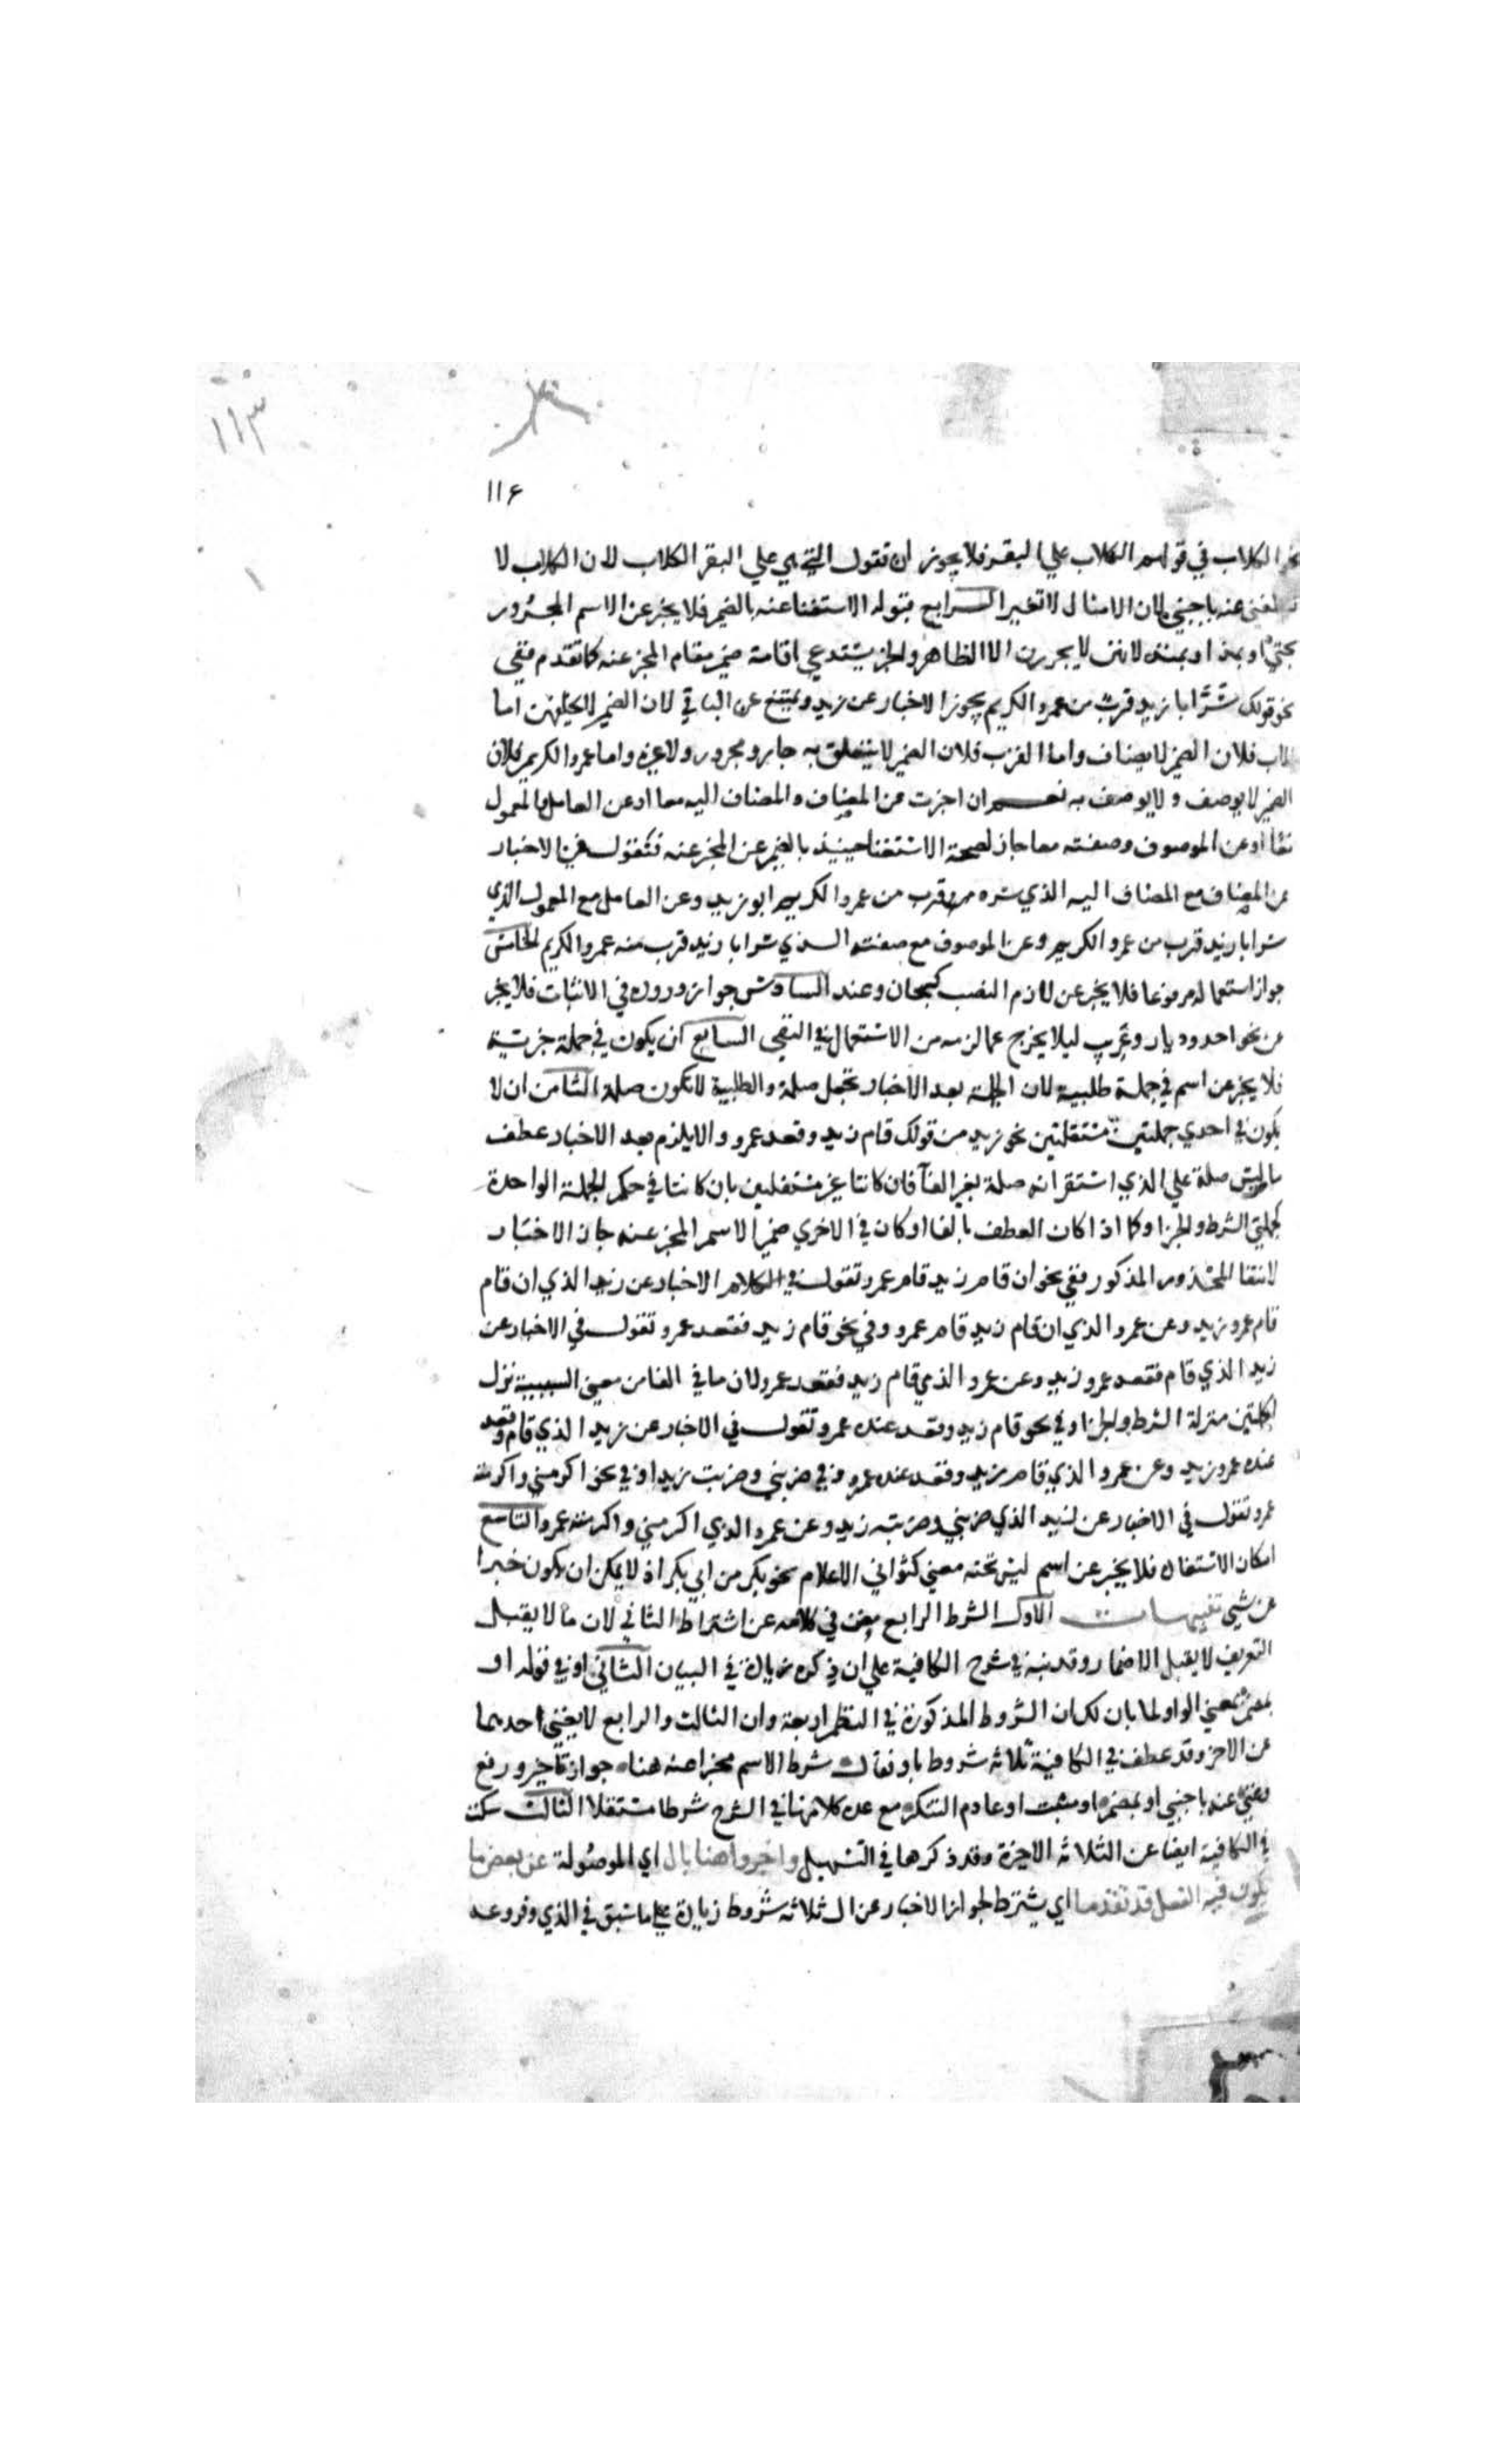 ١١٣
١١٤
نحو الكلاب في قولهم الكلاب علي البقر فلا يجوز ان تقول التي هي علي البقر الكلاب لان الكلاب لا
يستغني عنه باجنبي لان الامثال لا تغير الرابع قبوله الاستغنا عنه بالضمير فلا يخبر عن الاسم المجرور
بحتي او بمذ او بمنذ لانهن لا يجررن الا الظاهر والاخبار يستدعي اقامة ضمير مقام المخبر عنه كما تقدم ففي
نحو قولك سَرَّ ابا زيد قربٌ من عمرو الكريم يجوز الاخبار عن زيد ويمتنع عن الباقي لان الضمير لا يخلفهن اما
الاب فلان الضمير لا يضاف واما القرب فلان الضمير لا يتعلق به جار ومجرور ولا غيره واما عمرو الكريم فلان
الضمير لا يوصف ولا يوصف به نعم ان اخبرت عن المضاف والمضاف اليه معا او عن العامل والمعمول
معا او عن الموصوف وصفته معا جاز لصحة الاستغنا حينيذ بالضمير عن المخبر عنه فتقول في الاخبار
عن المضاف مع المضاف اليه الذي سره قرب من عمرو الكريم ابو زيد وعن العامل مع المعمول الذي
سر ابا زيد قرب من عمرو الكريم وعن الموصوف مع صفته الذي سر ابا زيد قرب منه عمرو الكريم الخامس
جواز استعماله مرفوعا فلا يخبر عن لازم النصب كسبحان وعند السادس جواز وروده في الاثبات فلا يخبر
عن نحو احد وديار وعَريب ليلا يخرج عما لزمه من الاستعمال في النفي السابع ان يكون في جملة خبرية
فلا يخبر عن اسم في جملة طلبية لان الجملة بعد الاخبار تجعل صلة والطلبية لا تكون صلة الثامن ان لا
يكون في احدي جملتين مستقلتين نحو زيد من قولك قام زيد وقعد عمرو والا يلزم بعد الاخبار عطف
ما ليس صلة علي الذي استقر انه صلة بغير الفآ فان كانتا غير مستقلتين بان كانتا في حكم الجملة الواحدة
كجملتي الشرط والجزا وكما اذا كان العطف بالفا او كان في الاخري ضمير الاسم المخبر عنه جاز الاخبار
لانتفا المحذور المذكور ففي نحو ان قام زيد قام عمرو تقول في الاخبار عن زيد الذي ان قام
قام عمرو زيد وعن عمرو الذي ان قام زيد قام عمرو وفي نحو قام زيد فقعد عمرو تقول في الاخبار عن
زيد الذي قام فقعد عمرو زيد وعن عمرو الذي قام زيد فقعد عمرو لان ما في الفا من معني السببية نزل
الجملتين منزلة الشرط والجزا وفي نحو قام زيد وقعد عنده عمرو تقول في الاخبار عن زيد الذي قام وقعد
عنده عمرو زيد وعن عمرو الذي قام زيد وقعد عنده عمرو وفي ضربني وضربت زيدا وفي نحو اكرمني واكرمته
عمرو تقول في الاخبار عن زيد الذي ضربني وضربته زيد وعن عمرو الذي اكرمني واكرمته عمرو التاسع
امكان الاستفادة فلا يخبر عن اسم ليس تحته معني كثواني الاعلام نحو بكر من ابي بكر اذ لا يمكن ان يكون خبرا
عن شي تنبيهات الاول الشرط الرابع مغن في كلامه عن اشتراط الثاني لان ما لا يقبل
التعريف لا يقبل الاضمار وقد نبه في شرح الكافية علي ان ذكره زيادة في البيان الثاني او في قوله او
بمضمر بمعني الواو لما بان لك ان الشروط المذكورة في النظم اربعة وان الثالث والرابع لا يغني احدهما
عن الاخر وقد عطف في الكافية ثلاثة شروط باو فقال شرط الاسم مخبرا عنه هنا جواز تاخير ورفع
وغني عنه باجنبي او بمضمر او مثبت او عادم التنكر مع عده كلا منها في الشرح شرطا مستقلا الثالث سكت
في الكافية ايضا عن الثلاثة الاخيرة وقد ذكرها في التسهيل واخبروا هنا بال اي الموصولة عن بعض ما
يكون فيه الفعل قد تقدما اي يشترط لجواز الاخبار عن ال ثلاثة شروط زيادة علي ما سبق في الذي وفروعه